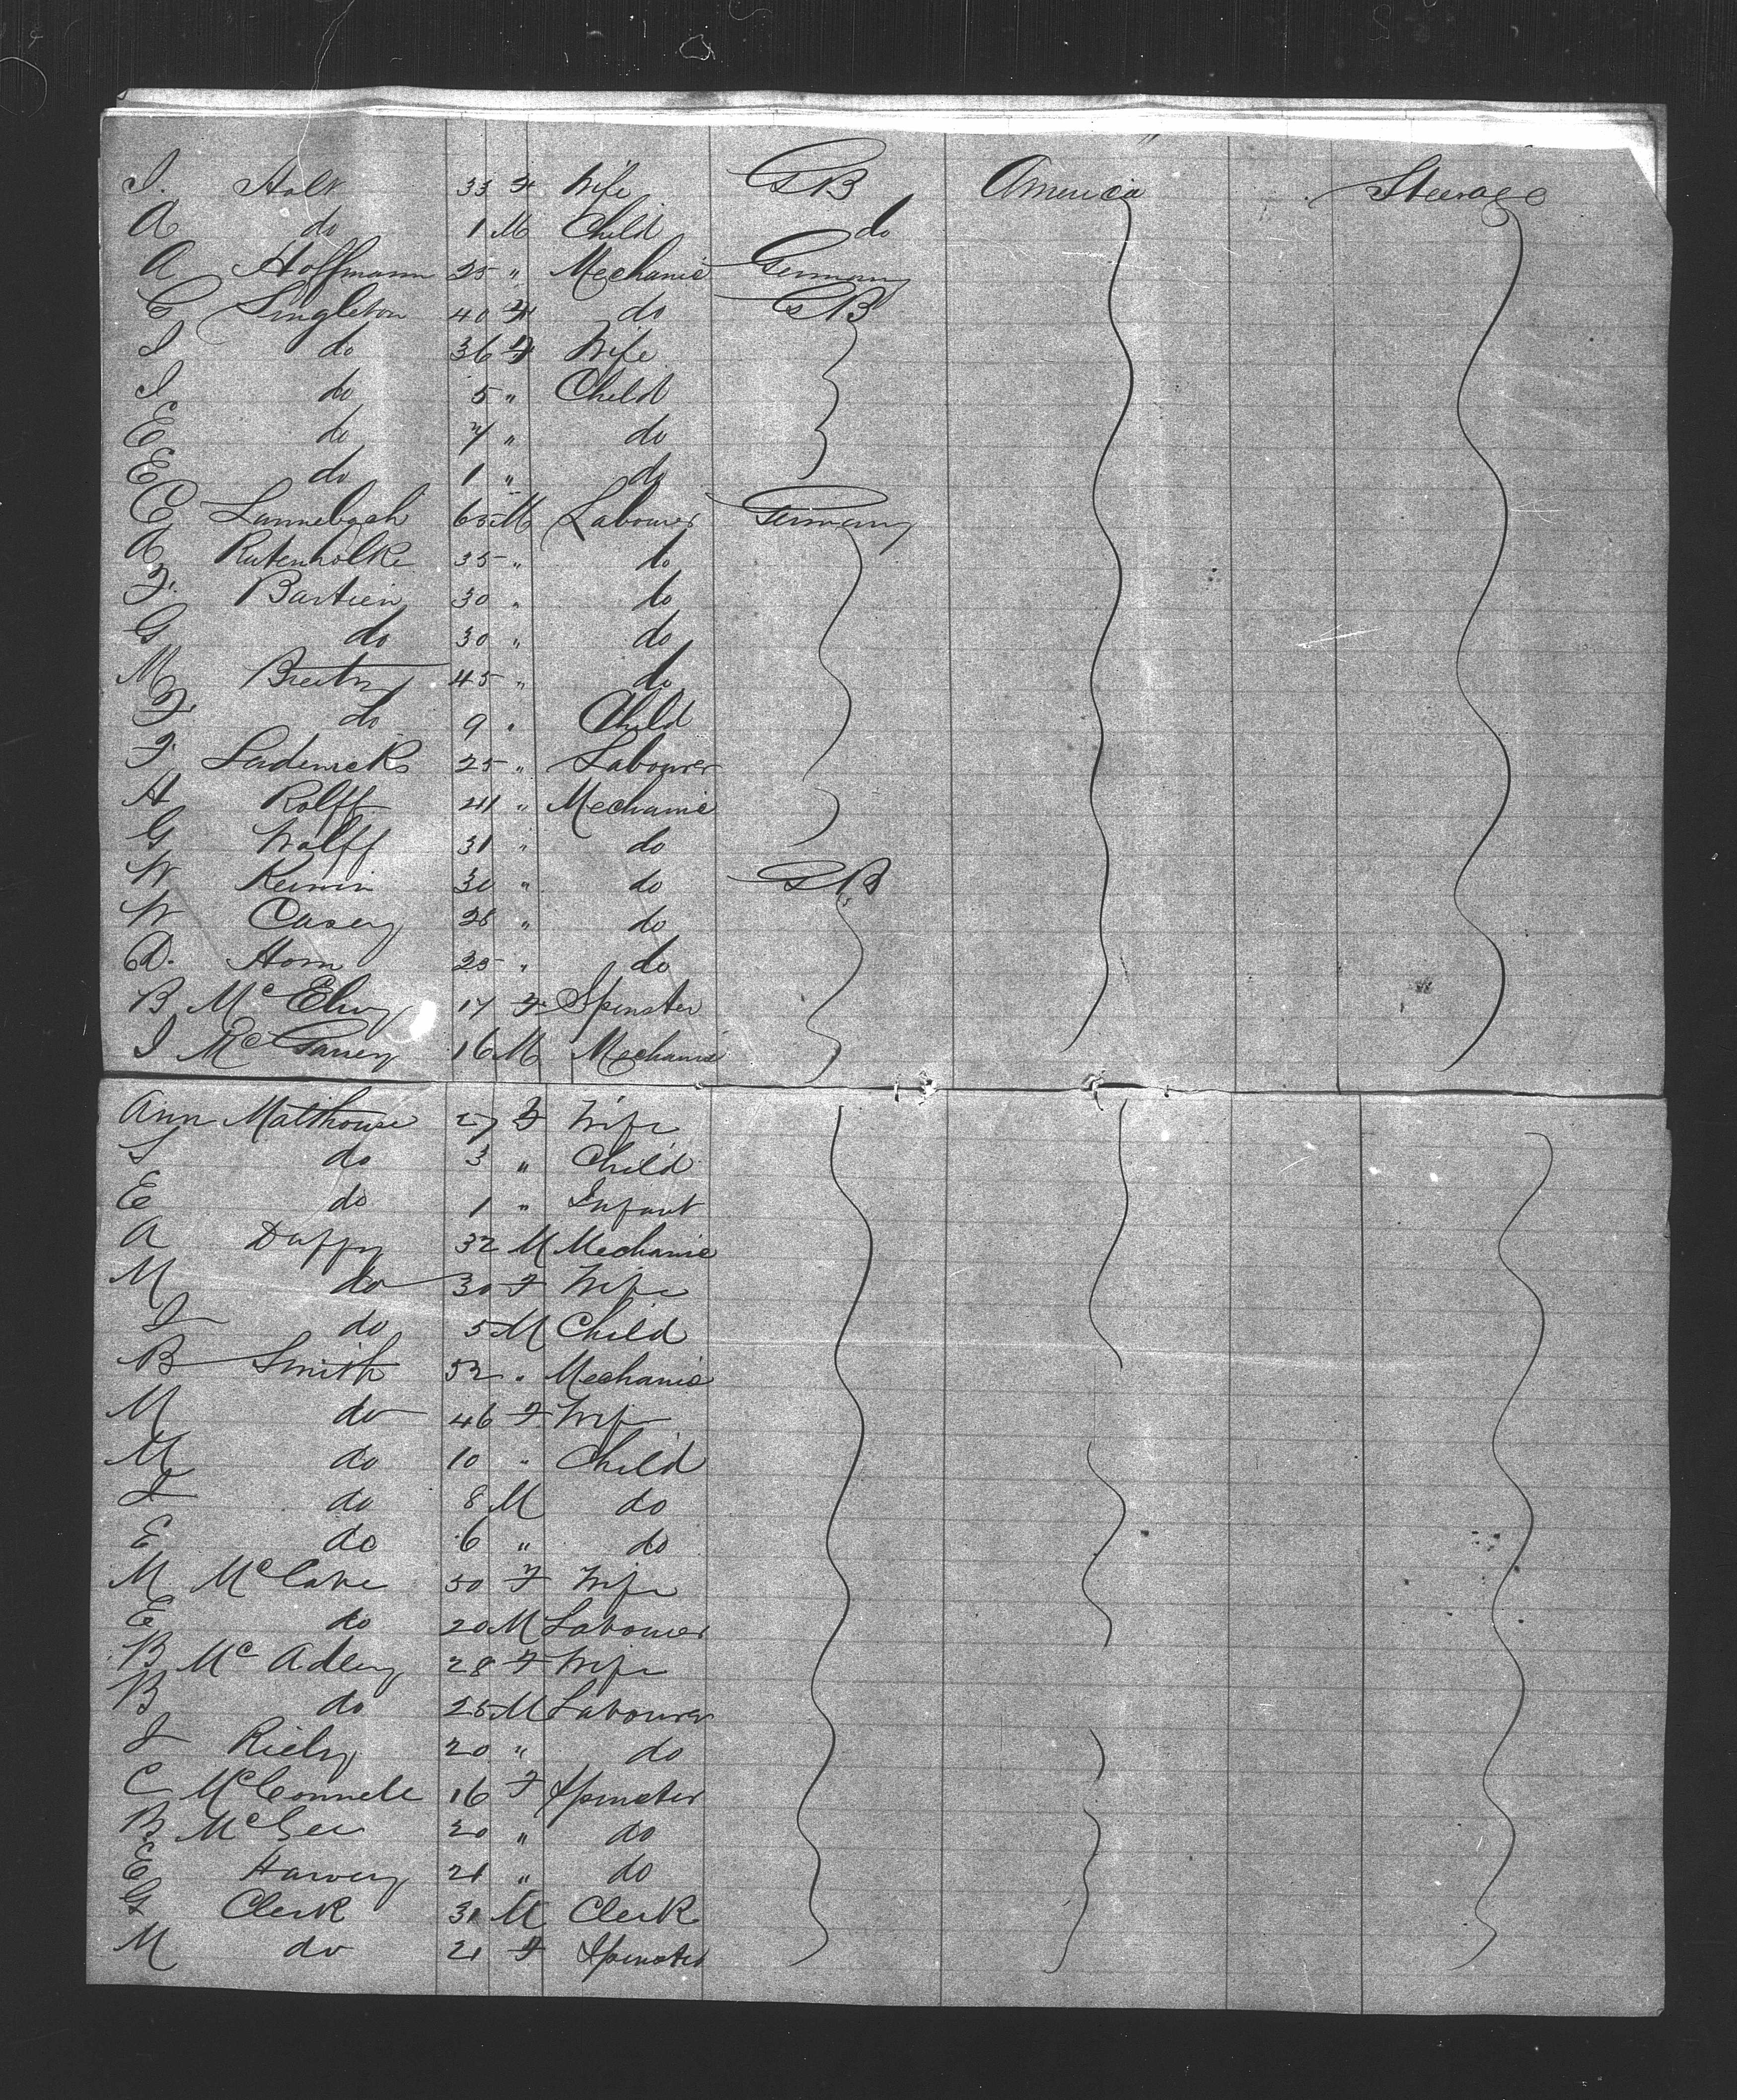 I. Holt 33 F Wife GB America Steerage
A do 1 M Child do
A Hoffmann 25 " Mechanic Germany
C Singleton 40 F do GB
I do 36 F Wife
I do 5 " Child
E do 7 " do
E do 1 " do
C 65 M Labourer Germany
A 35 " do
F. Bartien 30 " do
G do 30 " do
M 45 " do
F. do 9 " Child
F 25 " Labourer
H Rolff 21 " Mechanic
G Wolff 31 " do
W 30 " do GB
W Casey 28 " do
D. Horn 25 " do
B McElroy 17 F Spinster
I 16 M Mechanic
Ann Malthouse 27 F Wife
S do 3 " Child
E do 1 " Infant
A Duffy 32 M Mechanic
M do 30 F Wife
I do 5 M Child
B Smith 52 " Mechanic
M do 46 F Wife
M do 10 " Child
I do 8 M do
E do 6 " do
M McCabe 50 F Wife
E do 20 M Labourer
B McAdley 28 F Wife
B do 25 M Labourer
I Riely 20 " do
C McConnell 16 F Spinster
B McGee 20 " do
E Harvey 21 " do
G Clerk 31 M Clerk
M do 21 F Spinster